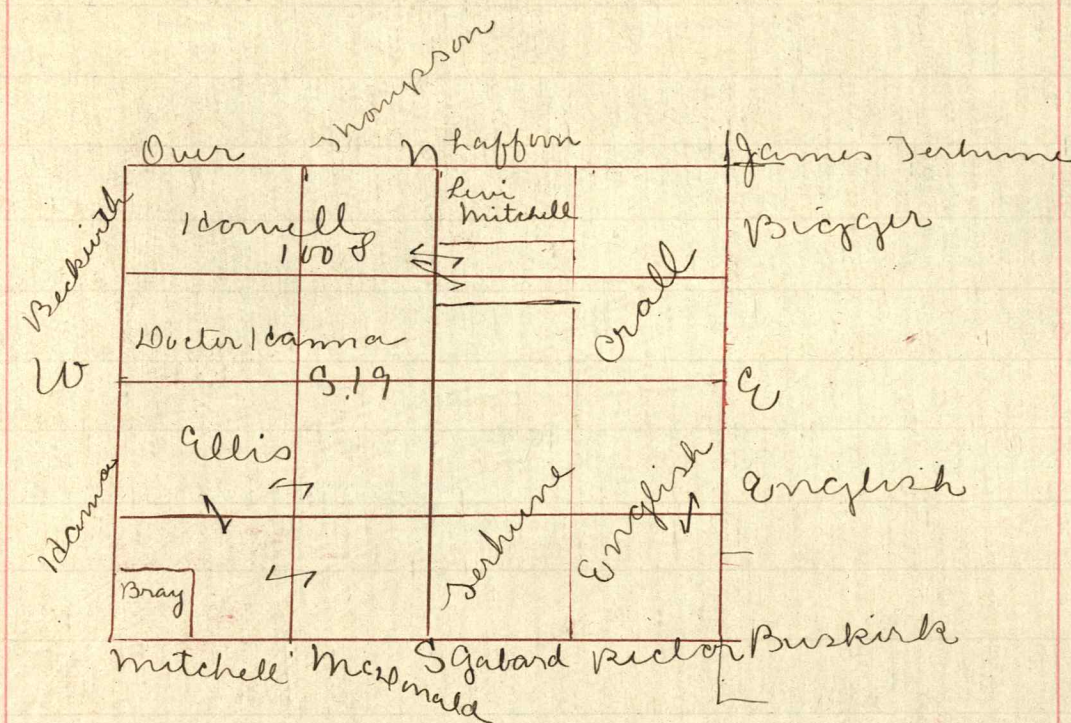 Thompson
Over
N
Laffoon
James Terhune
Beckwith
Howell
100 8
Levi
Mitchell
Bigger
Crall
Doctor Hanna
W
S.19
E
Ellis
English
Hanna
Terhune
English
Bray
Mitchell
McDonald
S
Gabard
Rector
Buskirk